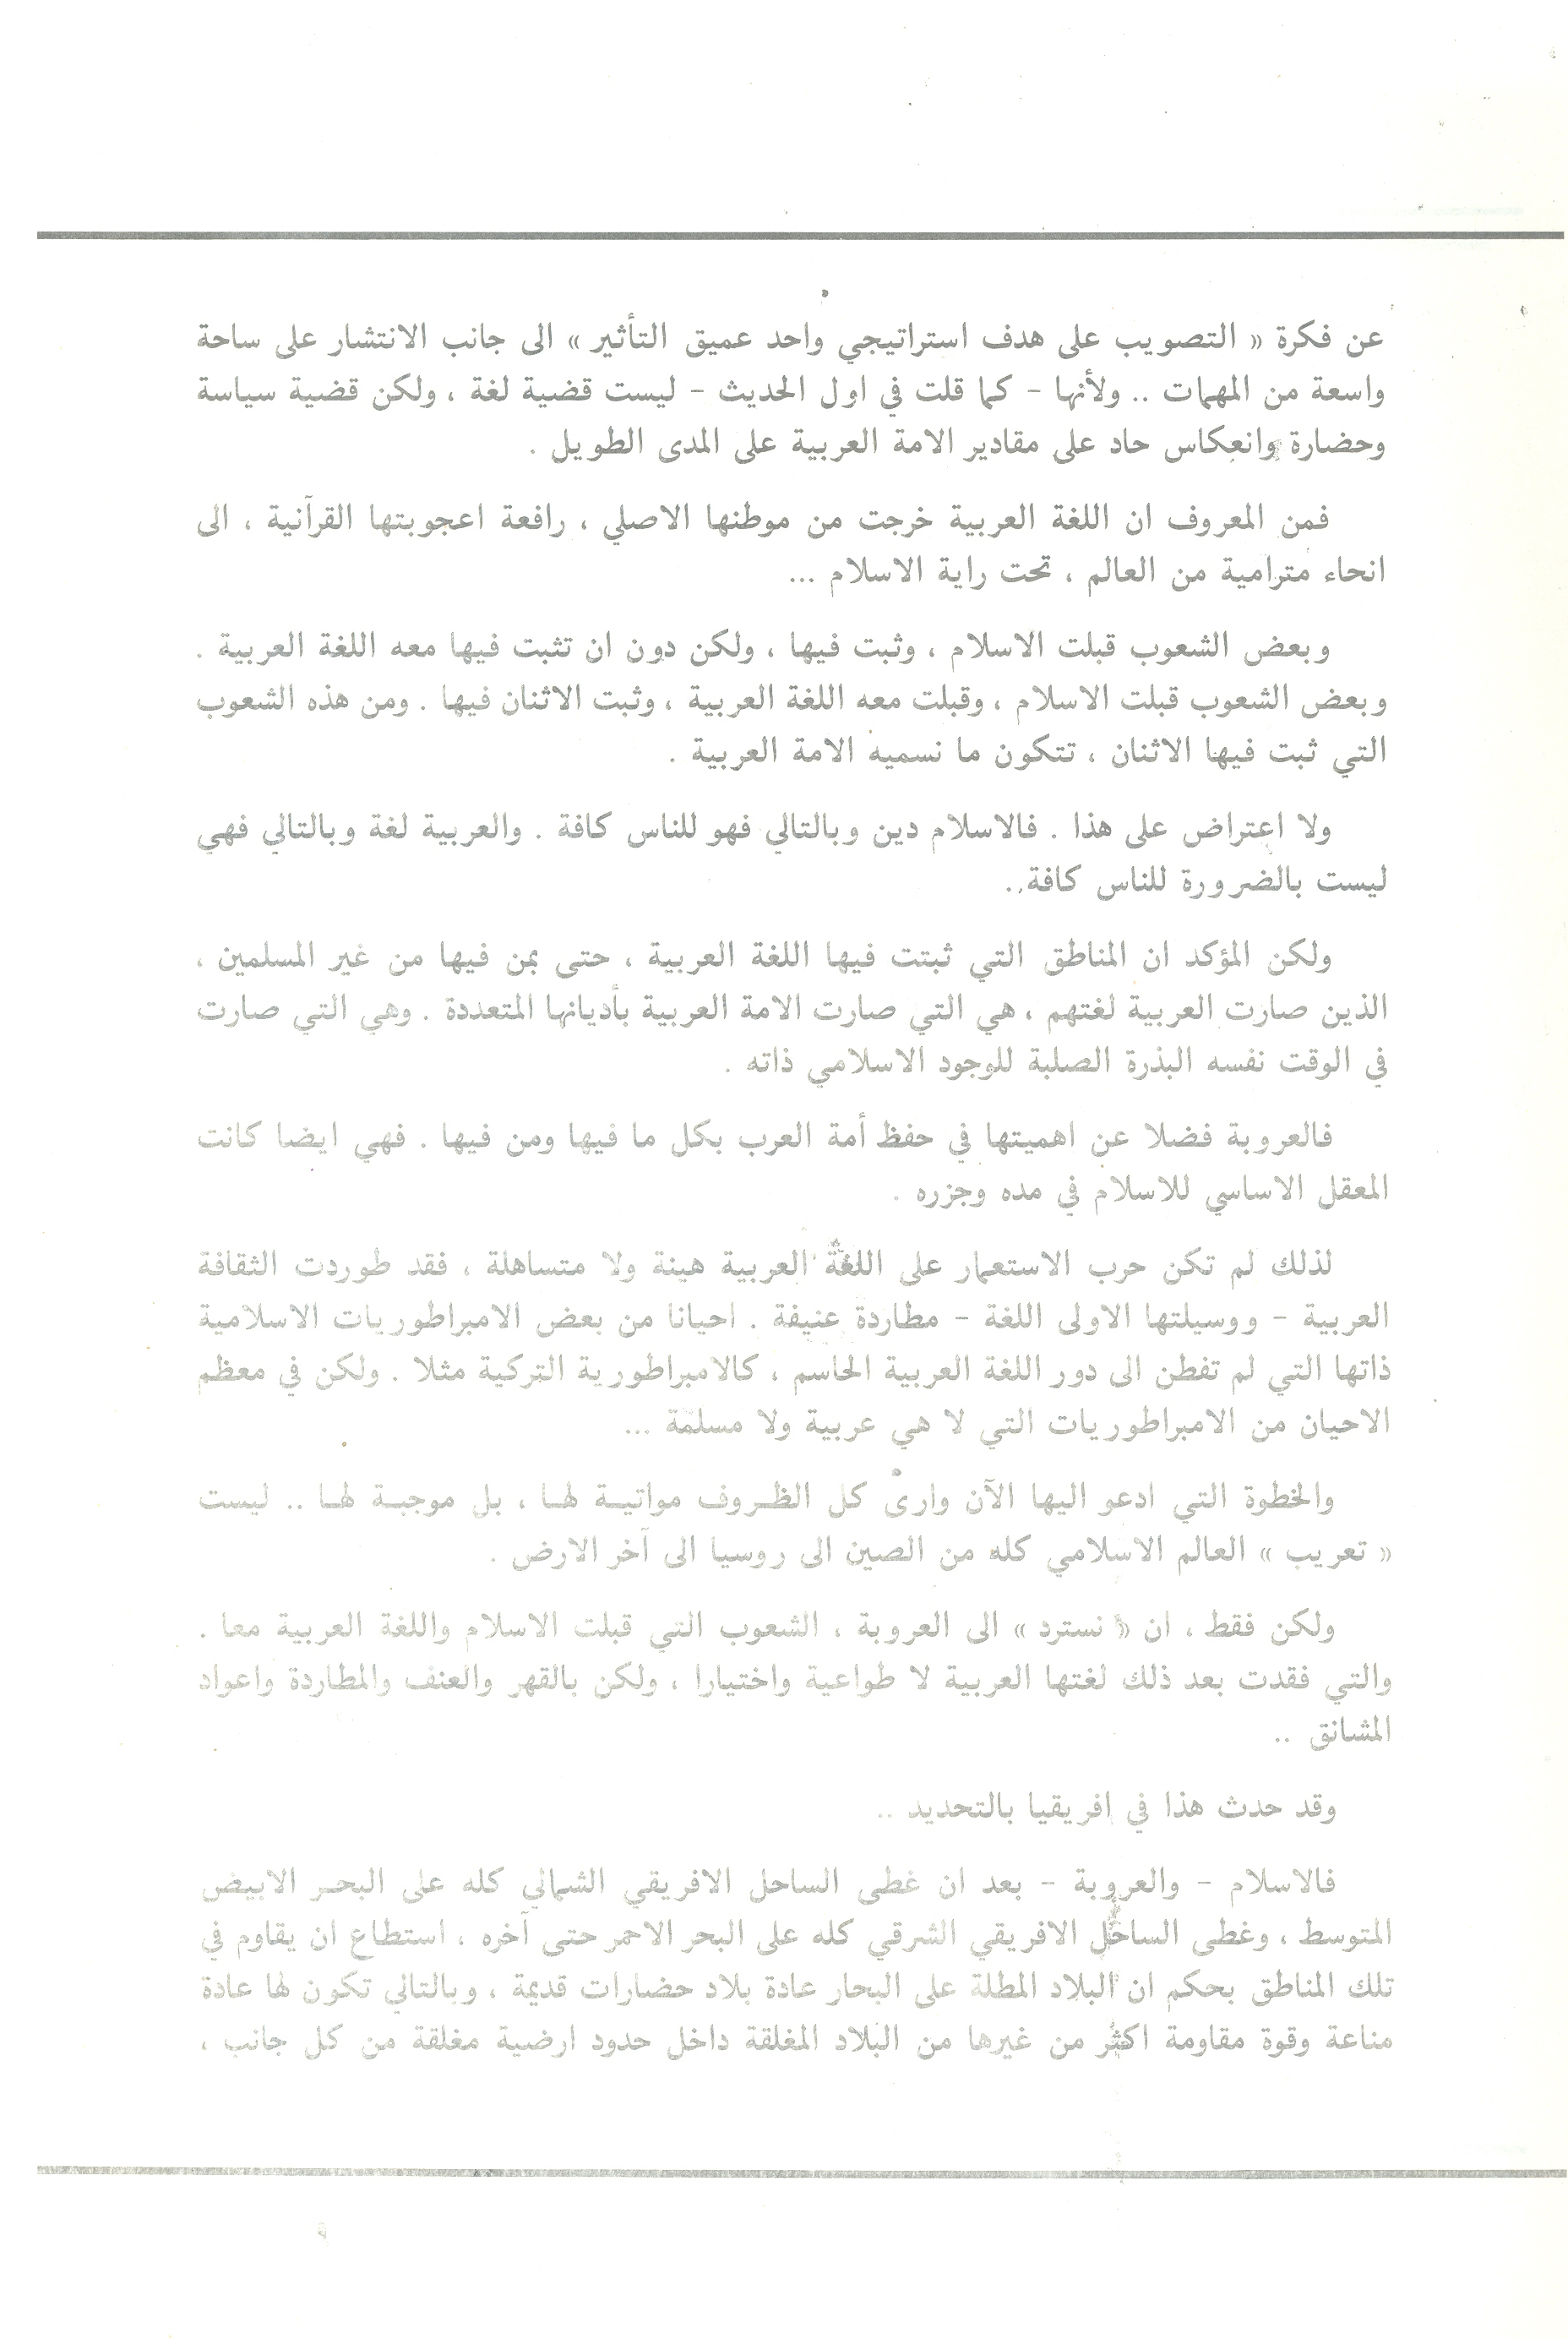 عن فكرة « التصويب على هدف استراتيجي واحد عميق التأثير » الى جانب الانتشار على ساحة
واسعة من المهمات .. ولأنها – كما قلت في اول الحديث – ليست قضية لغة ، ولكن قضية سياسة
وحضارة وانعكاس حاد على مقادير الامة العربية على المدى الطويل .
فمن المعروف ان اللغة العربية خرجت من موطنها الاصلي ، رافعة اعجوبتها القرآنية ، الى
انحاء مترامية من العالم ، تحت راية الاسلام ...
وبعض الشعوب قبلت الاسلام ، وثبت فيها ، ولكن دون ان تثبت فيها معه اللغة العربية .
وبعض الشعوب قبلت الاسلام ، وقبلت معه اللغة العربية ، وثبت الاثنان فيها . ومن هذه الشعوب
التي ثبت فيها الاثنان ، تتكون ما نسميه الامة العربية .
ولا اعتراض على هذا . فالاسلام دين وبالتالي فهو للناس كافة . والعربية لغة وبالتالي فهي
ليست بالضرورة للناس كافة ..
ولكن المؤكد ان المناطق التي ثبتت فيها اللغة العربية ، حتى بمن فيها من غير المسلمين ،
الذين صارت العربية لغتهم ، هي التي صارت الامة العربية بأديانها المتعددة . وهي التي صارت
في الوقت نفسه البذرة الصلبة للوجود الاسلامي ذاته .
فالعروبة فضلا عن اهميتها في حفظ أمة العرب بكل ما فيها ومن فيها . فهي ايضا كانت
المعقل الاساسي للاسلام في مده وجزره .
لذلك لم تكن حرب الاستعمار على اللغة العربية هينة ولا متساهلة ، فقد طوردت الثقافة
العربية – ووسيلتها الاولى اللغة – مطاردة عنيفة . احيانا من بعض الامبراطوريات الاسلامية
ذاتها التي لم تفطن الى دور اللغة العربية الحاسم ، كالامبراطورية التركية مثلا . ولكن في معظم
الاحيان من الامبراطوريات التي لا هي عربية ولا مسلمة ...
والخطوة التي ادعو اليها الآن وارى كل الظروف مواتية لها ، بل موجبة لها .. ليست
« تعريب » العالم الاسلامي كله من الصين الى روسيا الى آخر الارض .
ولكن فقط ، ان « نسترد » الى العروبة ، الشعوب التي قبلت الاسلام واللغة العربية معا .
والتي فقدت بعد ذلك لغتها العربية لا طواعية واختيارا ، ولكن بالقهر والعنف والمطاردة واعواد
المشانق ..
وقد حدث هذا في افريقيا بالتحديد ..
فالاسلام – والعروبة – بعد ان غطى الساحل الافريقي الشمالي كله على البحر الابيض
المتوسط ، وغطى الساحل الافريقي الشرقي كله على البحر الاحمر حتى آخره ، استطاع ان يقاوم في
تلك المناطق بحكم ان البلاد المطلة على البحار عادة بلاد حضارات قديمة ، وبالتالي تكون لها عادة
مناعة وقوة مقاومة اكثر من غيرها من البلاد المغلقة داخل حدود ارضية مغلقة من كل جانب ،